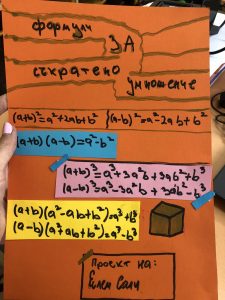 формули
ЗА
съкратено
умножение
(a+b)²=a²+2ab+b² (a-b)²=a²-2ab+b²
(a+b)(a-b)=a²-b²
(a+b)³=a³+3a²b+3ab²+b³
(a-b)³=a³-3a²b+3ab²-b³
(a+b)(a²-ab+b²)=a³+b³
(a-b)(a²+ab+b²)=a³-b³
Проект на: